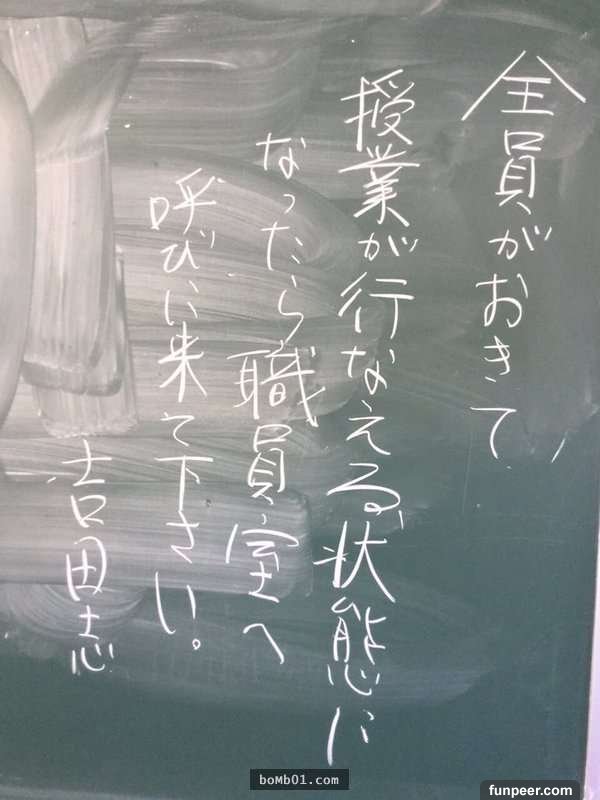 全員がおきて
授業が行なえる状態に
なったら職員室へ
呼びに来て下さい。
吉田志
boMb01.com
funpeer.com